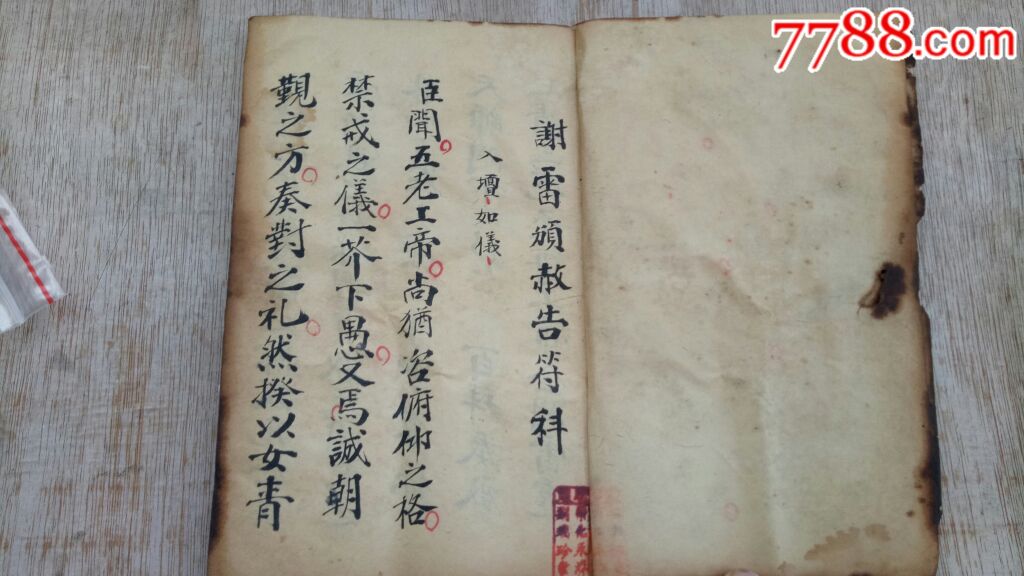 7788.com
謝雷頒赦告符科
入壇如儀
臣聞五老上帝尚猶咨俯仰之格
禁戒之儀一芥下愚又焉誠朝
覲之方奏對之礼然揆以女青